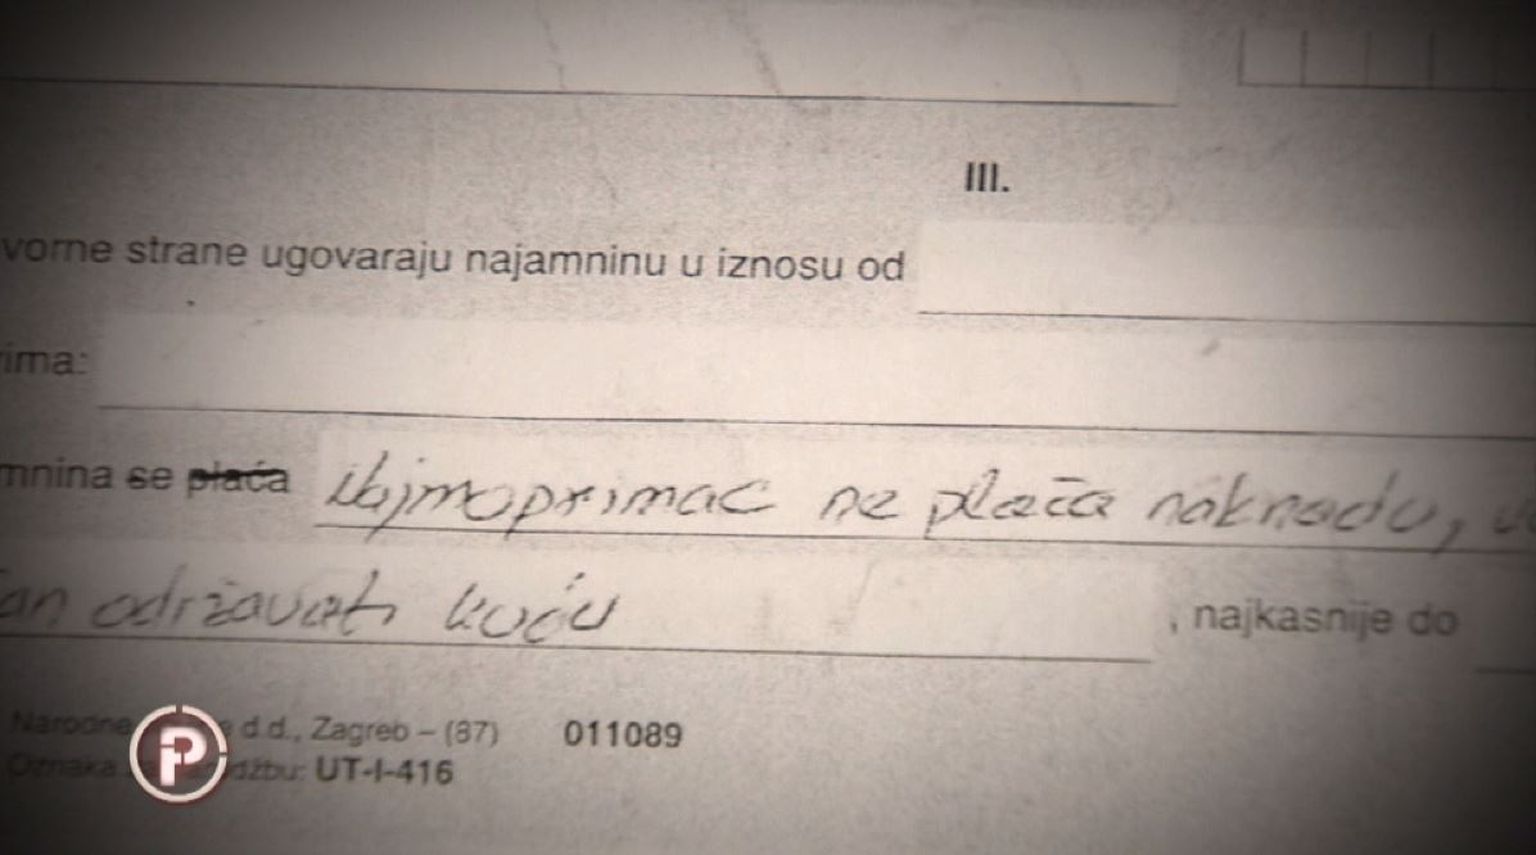 III.
vorne strane ugovaraju najamninu u iznosu od
ima:
mnina se plaća Najmoprimac ne plaća naknadu,
an održavati kuću , najkasnije do
Narodne d.d., Zagreb – (87) 011089
Oznaka džbu: UT-I-416
P